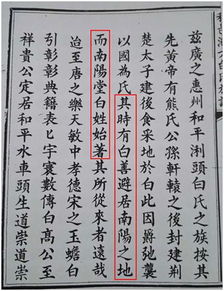 茲廣之惠州和平浰頭白氏之族按其
先黃帝有熊氏公孫軒轅之後封建荆
楚太子建後食采地於白此因爵弛襲
以國為氏其時有白善避居南陽之地
而南陽堂白姓始著其所從來者遠哉
迨至唐之樂天敏中孝德宋之玉蟾白
引彰彰典籍表匕宇寰數傳白高公至
祥貴公定居和平水車頭生道崇道崇